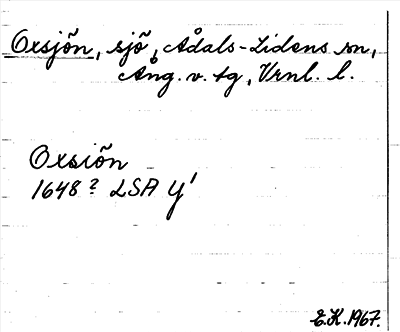 Oxsjön, sjö, Ådals-Lidens sn,
Ång. v. tg, Vrnl. l.
Oxsiön
1648? LSA Y'
E.K. 1967.